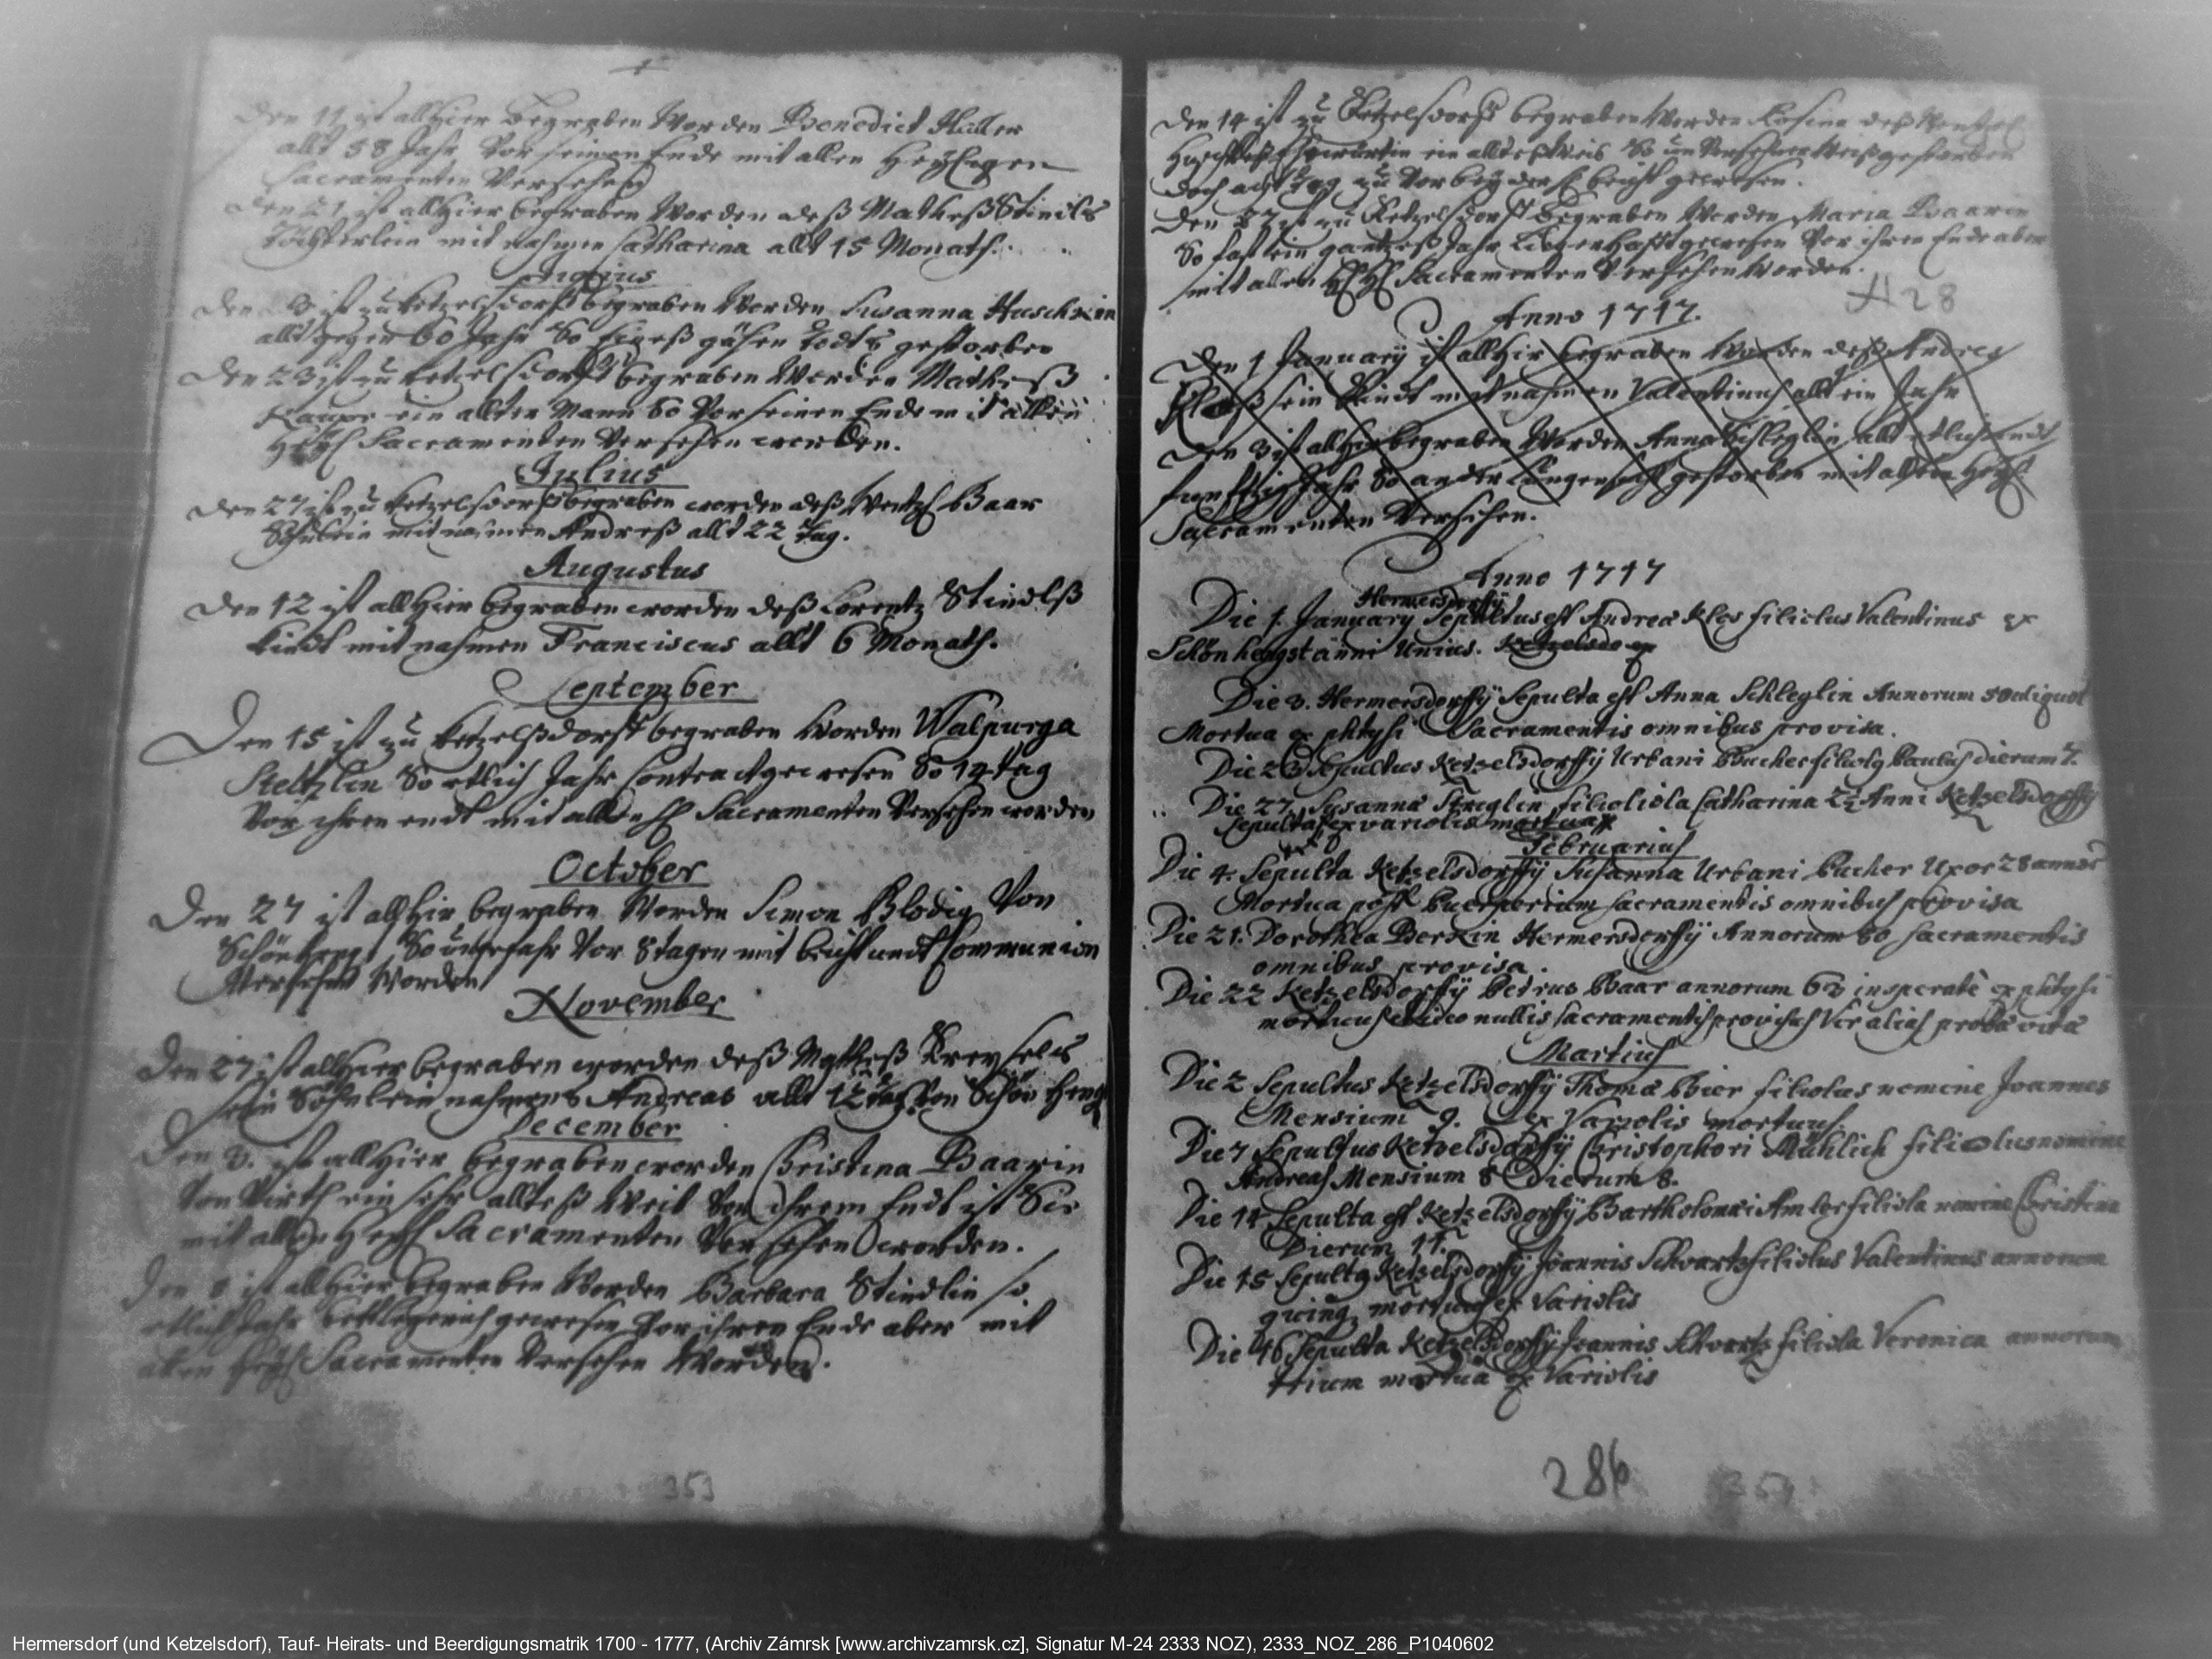 Den 11 ist allhier begraben Worden Benedict Haller
allt 58 Jahr Vor seinem Ende mit allen Heyligen
Sacramenten Versehen
Den 21 ist allhier begraben Worden deß Matheß Stindls
Töchterlein mit nahmen Catharina allt 15 Monath.
Junius
Den 3 ist zu Ketzelsdorff begraben Worden Susanna
allt gegen 60 Jahr So gähen Todts gestorben
Den 23 ist zu Ketzelsdorff begraben Worden Matheß
ein allter Mann So Vor seinen Ende mit allen
Sacramenten Versehen worden.
Julius
Den 27 ist zu Ketzelsdorff begraben worden deß Baar
Söhnlein mit nahmen Andreß allt 22 Tag.
Augustus
Den 12 ist allhier begraben worden deß Lorentz Stindlß
Kindt mit nahmen Franciscus allt 6 Monath.
September
Den 15 ist zu Ketzelßdorff begraben Worden Walpurga
So etlich Jahr contract gewesen So 14 Tag
Vor ihren endt mit allen Sacramenten Versehen worden
October
Den 27 ist allhir begraben Worden Simon Blodig Von
So ungefahr Vor 8 tagen mit beicht undt Communion
Versehen Worden
November
Den 27 ist allhier begraben worden deß Matheß
sein Söhnlein nahmens Andreas allt 12 tag Von Schön
December
Den 3. ist allhier begraben worden Christina Baarin
Von ein sehr allteß Weib Vor ihrem Endt ist Sie
mit allen Sacramenten Versehen worden.
Den 8 ist allhier begraben Worden Barbara Stindlin so
etlich Jahr bettlegerich gewesen Vor ihren Ende aber mit
allen Sacramenten Versehen Worden.
353
Den 14 ist zu Ketzelsdorff begraben Worden Rosina deß
ein allteß Weib So gestorben
doch acht tag zu Vor bey der beicht gewesen.
Den 27 ist zu Ketzelsdorff begraben Worden Maria Baarin
So fast ein gantzeß Jahr gewesen Vor ihren Ende aber
mit allen Sacramenten Versehen Worden.
28
Anno 1717.
Den 1 January ist allhir begraben Worden deß Andreß
sein Kindt mit nahmen Valentinus allt ein Jahr
Den 3 ist allhir begraben Worden Anna Schleglin allt etlich undt
funftzig Jahr So an der Lungensucht gestorben mit allen
Sacramenten Versehen.
Anno 1717
Hermersdorffÿ
Die 1. January Sepultus est Andrea Kles filiolus Valentinus ex
Schönhengst anni Unius.
Die 3. Hermersdorffÿ Sepulta est Anna Schleglin Annorum 50 aliquot
Mortua ex phtysi Sacramentis omnibus provisa.
Die 23 Sepultus Ketzelsdorffÿ Urbani Bucher filiolus Paulus dierum 7.
Die 27 Susanna filiola Catharina 2½ Anni Ketzelsdorffÿ
sepulta ex variolis mortua
Februarius
Die 4. Sepulta Ketzelsdorffÿ Susanna Urbani Bucher Uxor 28 annor
Mortua post Puerperium sacramentis omnibus provisa
Die 21. Dorothea Hermersdorffÿ Annorum 80 sacramentis
omnibus provisa.
Die 22 Ketzelsdorffÿ Petrus Baar annorum 63 insperate ex phtysi
mortuus et ideo nullis sacramentis provisus Vir alias proba vita
Martius
Die 2 Sepultus Ketzelsdorffÿ Thoma Bier filiolus nomine Joannes
Mensium 9. ex Variolis mortuus.
Die 7 Sepultus Ketzelsdorffÿ Christophori Mühlich filiolus nomine
Andreas Mensium 8 Dierum 8.
Die 14 Sepulta est Ketzelsdorffÿ Bartholomæi filiola nomine Christina
Dierum 17.
Die 15 Sepultus Ketzelsdorffÿ Joannis Schwartz filiolus Valentinus annorum
mortuus ex Variolis
Die 16 Sepulta Ketzelsdorffÿ Joannis Schwartz filiola Veronica annorum
trium mortua ex Variolis
286
Hermersdorf (und Ketzelsdorf), Tauf- Heirats- und Beerdigungsmatrik 1700 - 1777, (Archiv Zámrsk [www.archivzamrsk.cz], Signatur M-24 2333 NOZ), 2333_NOZ_286_P1040602